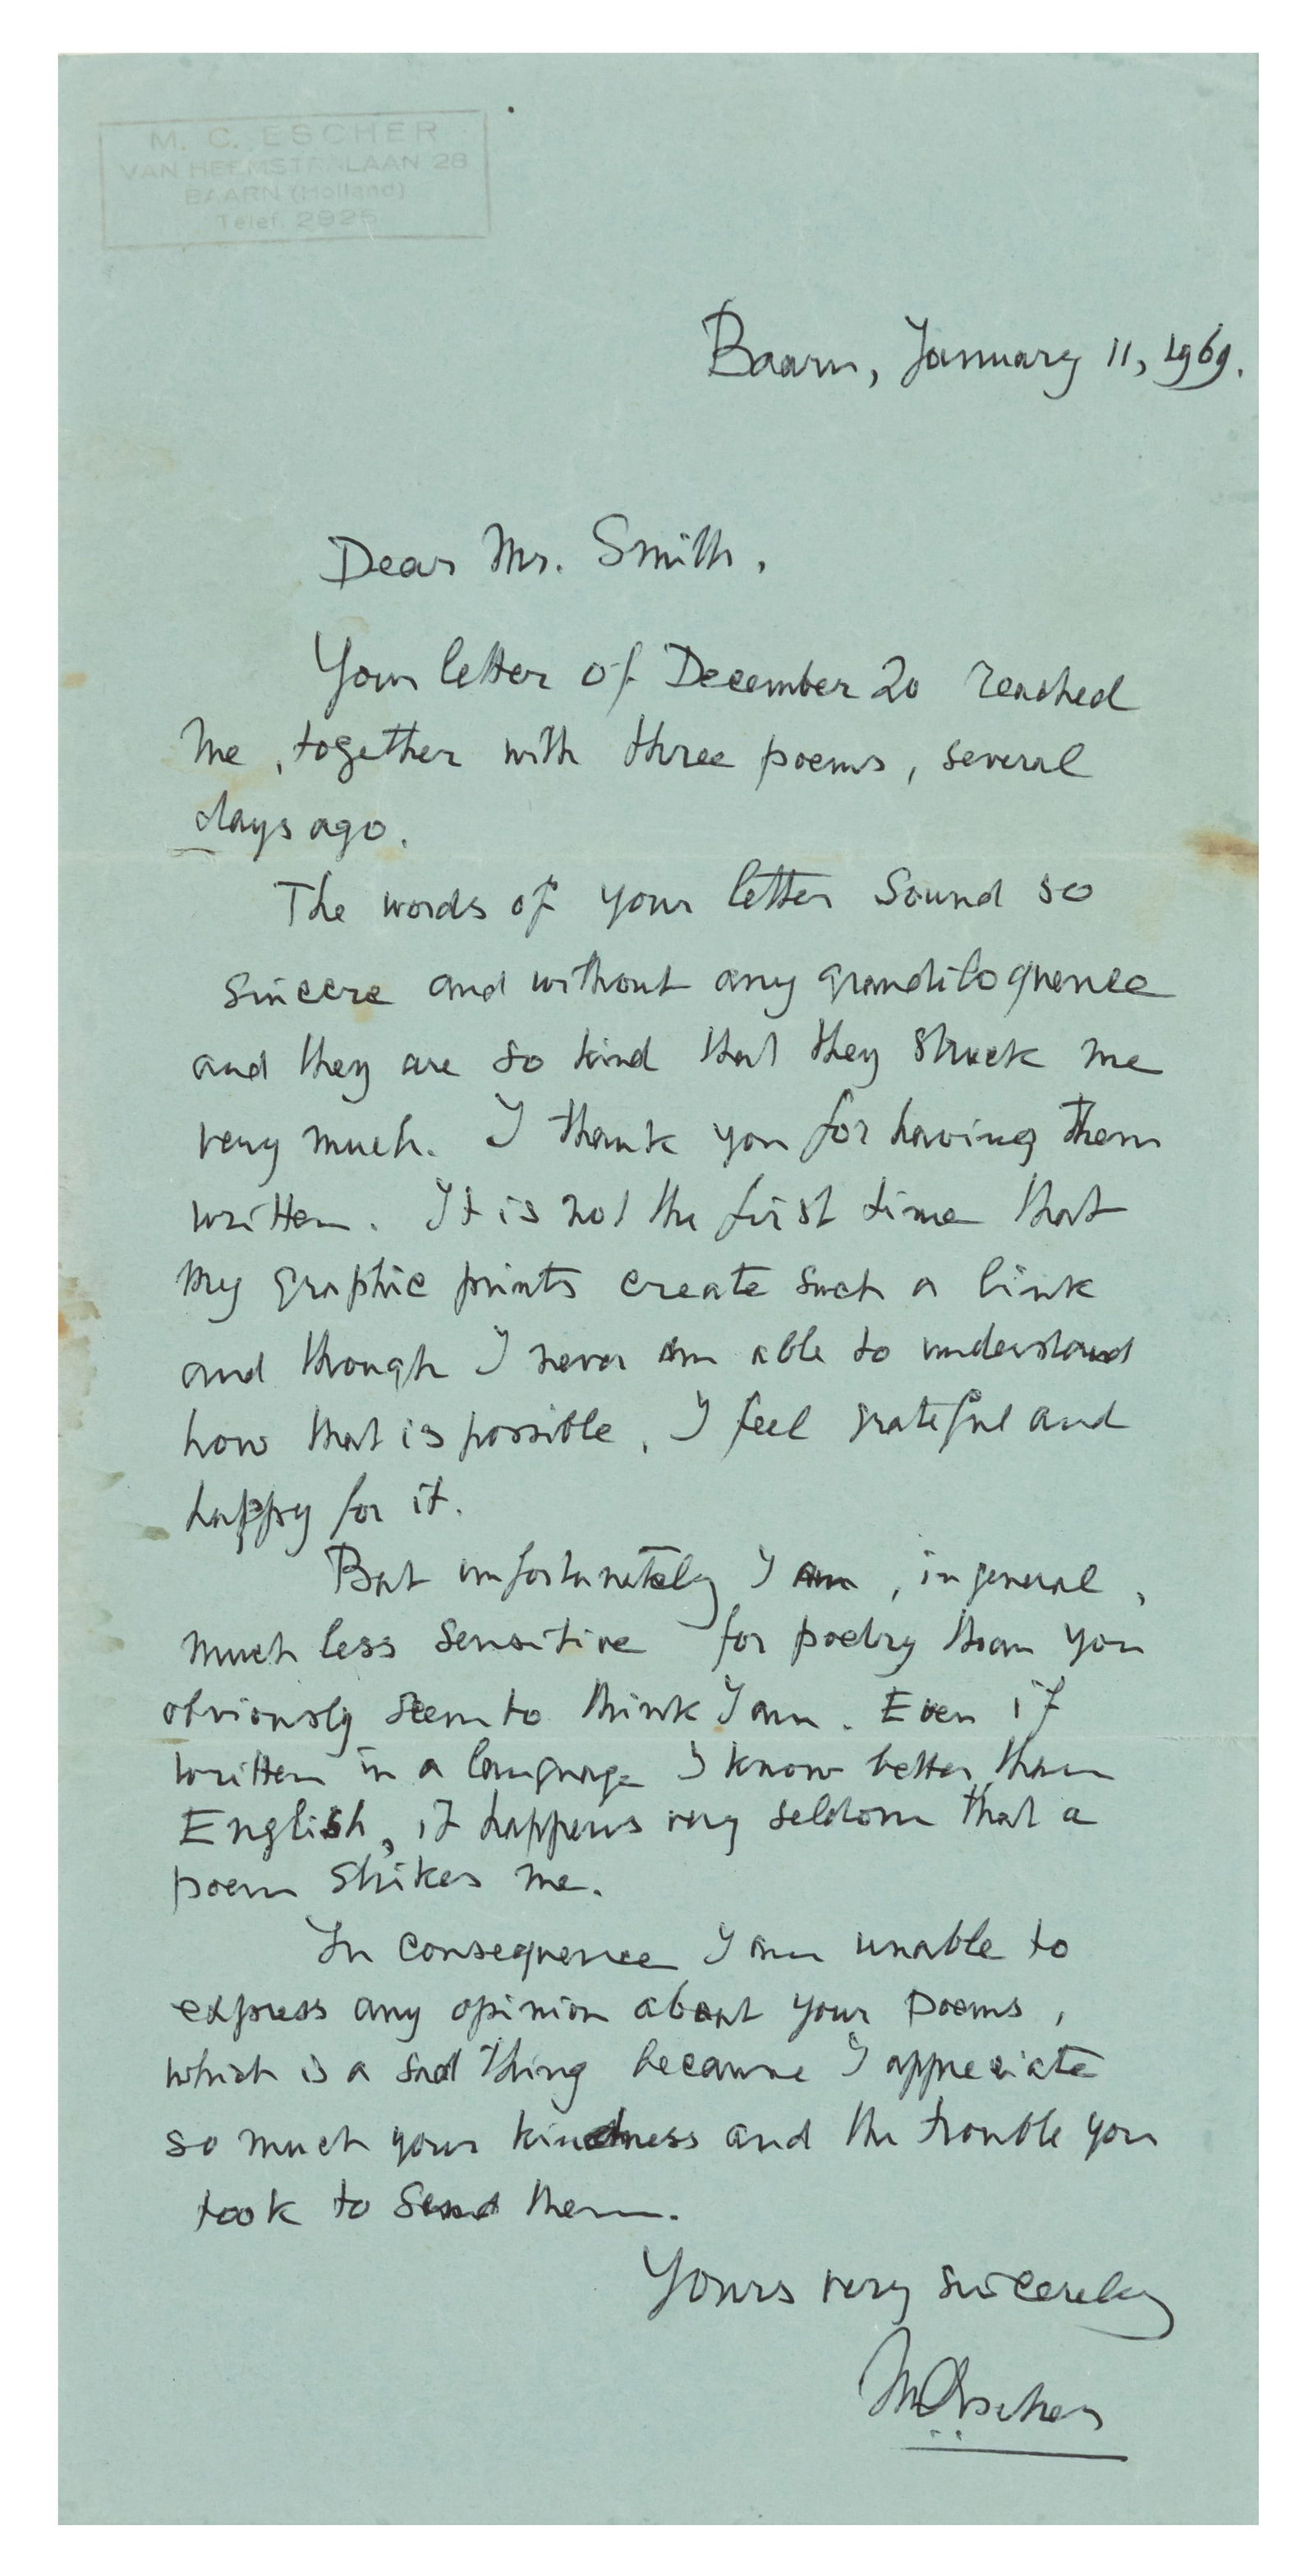 M. C. ESCHER
VAN HEEMSTRALAAN 28
BAARN (Holland)
Telef. 2925
Baarn, January 11, 1969.
Dear Mr. Smith,
Your letter of December 20 reached
me, together with three poems, several
days ago.
The words of your letter sound so
sincere and without any grandiloquence
and they are so kind that they struck me
very much. I thank you for having them
written. It is not the first time that
my graphic prints create such a link
and though I never am able to understand
how that is possible, I feel grateful and
happy for it.
But unfortunately I am, in general,
much less sensitive for poetry than you
obviously seem to think I am. Even if
written in a language I know better than
English, it happens very seldom that a
poem strikes me.
In consequence I am unable to
express any opinion about your poems,
which is a sad thing because I appreciate
so much your kindness and the trouble you
took to send them.
Yours very sincerely
MCEscher